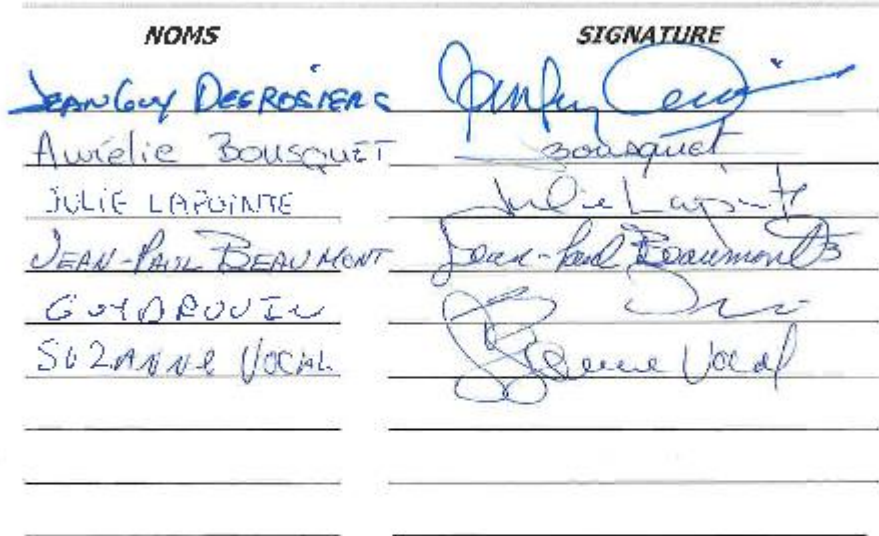 NOMS SIGNATURE
JEAN GUY DESROSIERS
Aurélie BOUSQUET Bousquet
JULIE LAPOINTE Julie Lapointe
JEAN-PAUL BEAUMONT Jean-Paul Beaumont
GUY DROUIN
SUZANNE VOCAL Suzanne Vocal